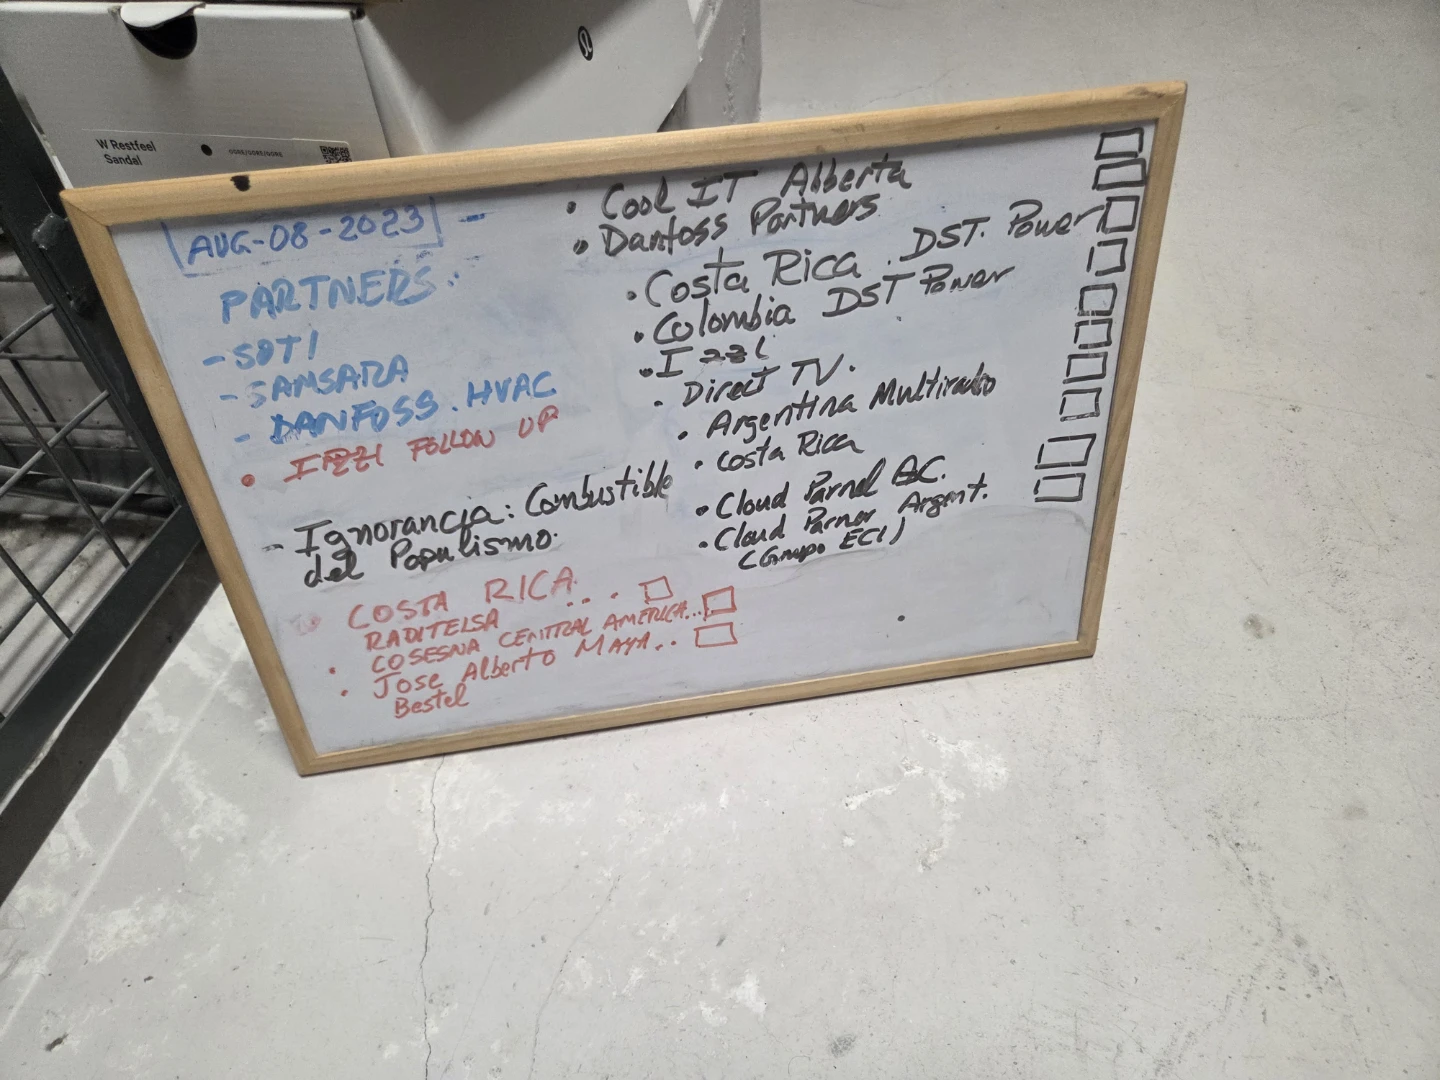 W Restfeel
Sandal
AUG-08-2023 -
PARTNERS:
- SOTI
- SAMSARA
- DANFOSS. HVAC
• IZZI FOLLOW UP
- Ignorancia: Combustible
del Populismo.
COSTA RICA...
RADITELSA
• COSESNA CENTRAL AMERICA...
• Jose Alberto MAYA..
Bestel
• Cool IT Alberta
• Danfoss Partners
• Costa Rica. DST. Power
• Colombia DST Power
• Izzi
• Direct TV.
• Argentina Multiradio
• Costa Rica
• Cloud Parnel
• Cloud Parner Argent.
(Grupo ECI)